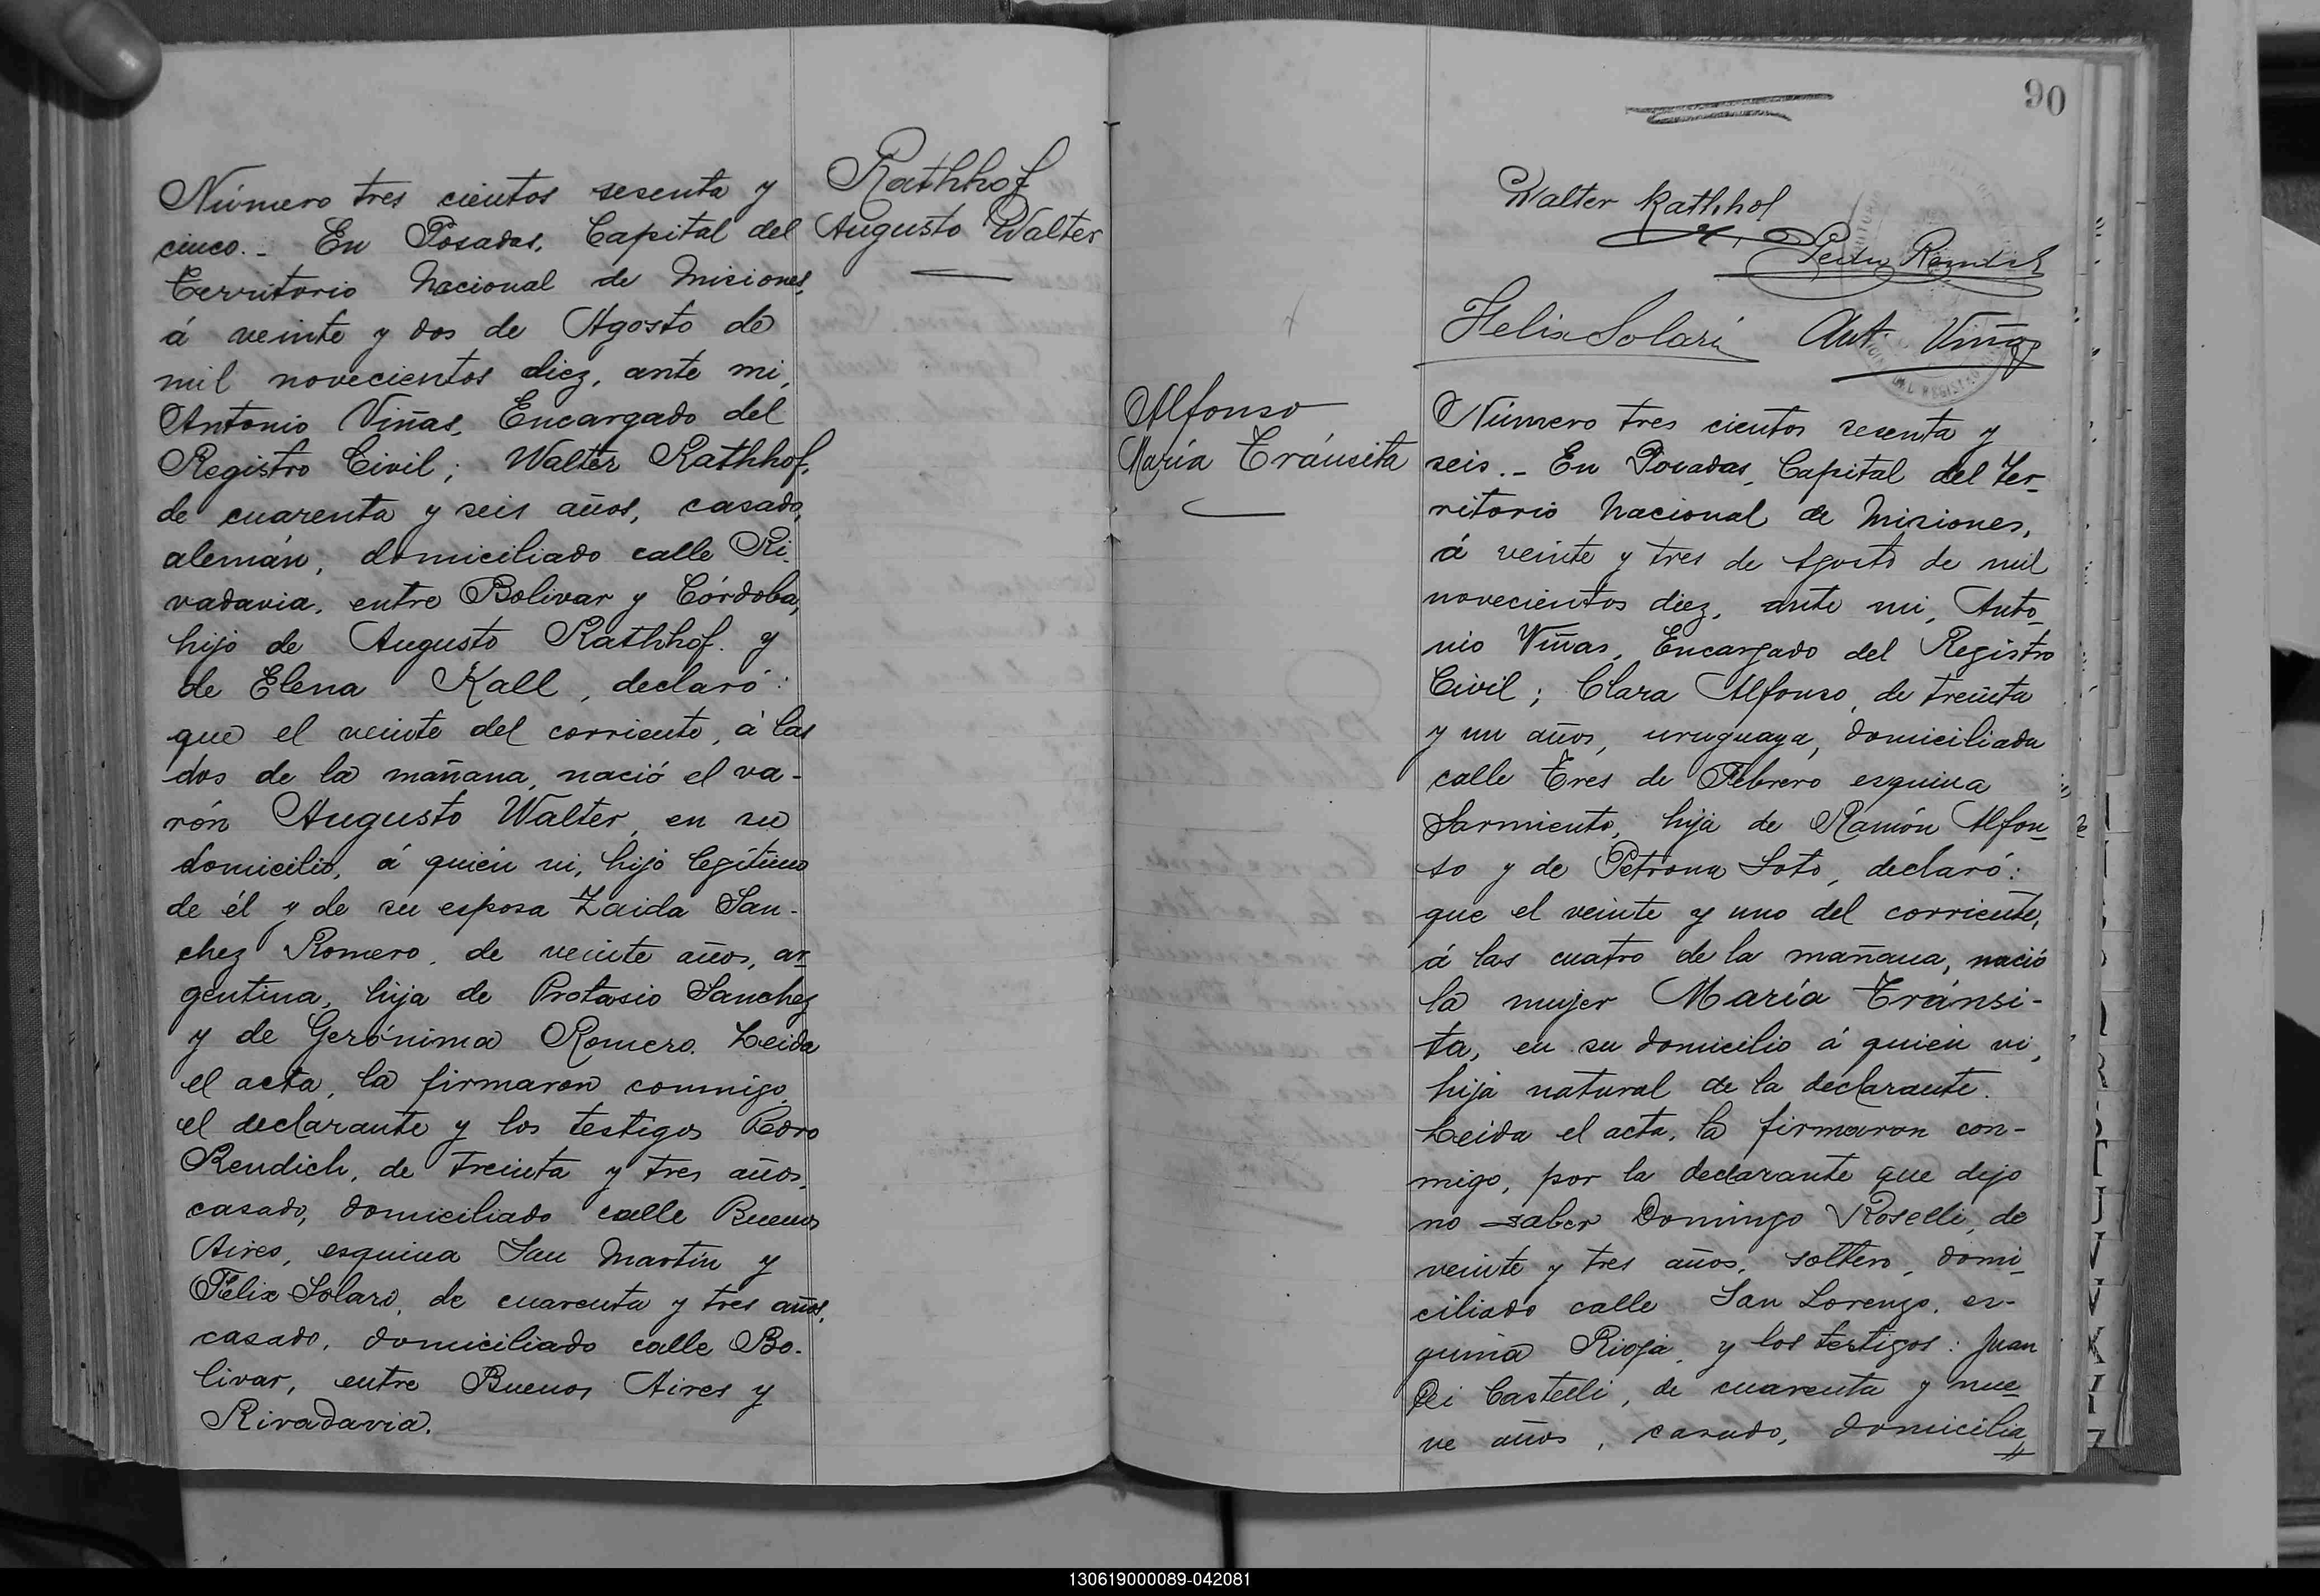 Número tres cientos sesenta y
cinco.- En Posadas, Capital del
Territorio Nacional de Misiones,
á veinte y dos de Agosto de
mil novecientos diez, ante mi,
Antonio Viñas, Encargado del
Registro Civil; Walter Rathhof,
de cuarenta y seis años, casado,
alemán, domiciliado calle Ri-
vadavia, entre Bolivar y Córdoba,
hijo de Augusto Rathhof y
de Elena Kall, declaró:
que el veinte del corriente, á las
dos de la mañana, nació el va-
rón Augusto Walter, en su
domicilio, á quién vi, hijo legítimo
de él y de su esposa Zaida San-
chez Romero, de veinte años, ar-
gentina, hija de Protasio Sanchez
y de Gerónima Romero. Leida
el acta, la firmaron conmigo,
el declarante y los testigos Pedro
Rendich, de treinta y tres años,
casado, domiciliado calle Buenos
Aires, esquina San Martín y
Félix Solari, de cuarenta y tres años,
casado, domiciliado calle Bo-
livar, entre Buenos Aires y
Rivadavia.
Rathhof
Augusto Walter
90
Walter Rathhof
Pedro Rendich
Felix Solari Ant. Viñas
Alfonso
María Tránsita
Número tres cientos sesenta y
seis.- En Posadas, Capital del Ter-
ritorio Nacional de Misiones,
á veinte y tres de Agosto de mil
novecientos diez, ante mi, Anto-
nio Viñas, Encargado del Registro
Civil; Clara Alfonso, de treinta
y un años, uruguaya, domiciliada
calle Tres de Febrero esquina
Sarmiento, hija de Ramón Alfon-
so y de Petrona Soto, declaró:
que el veinte y uno del corriente,
á las cuatro de la mañana, nació
la mujer María Tránsi-
ta, en su domicilio á quién vi,
hija natural de la declarante.
Leida el acta, la firmaron con-
migo, por la declarante que dijo
no saber Domingo Roselli, de
veinte y tres años, soltero, domi-
ciliado calle San Lorenzo, es-
quina Rioja, y los testigos: Juan
Dei Castelli, de cuarenta y nue-
ve años, casado, domicilia
130619000089-042081